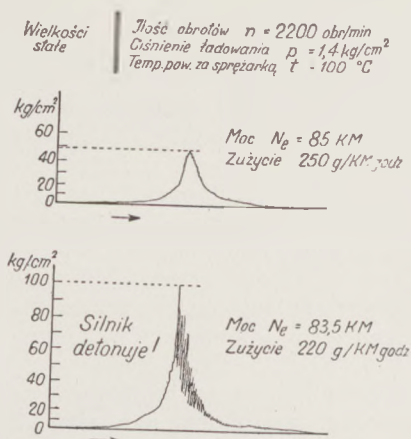 Wielkości
stałe
Ilość obrotów n = 2200 obr/min
Ciśnienie ładowania p = 1,4 kg/cm²
Temp. pow. za sprężarką t - 100 °C
kg/cm²
60
40
20
0
Moc Ne = 85 KM
Zużycie 250 g/KM godz
kg/cm²
100
80
60
40
20
0
Silnik
detonuje!
Moc Ne = 83,5 KM
Zużycie 220 g/KM godz